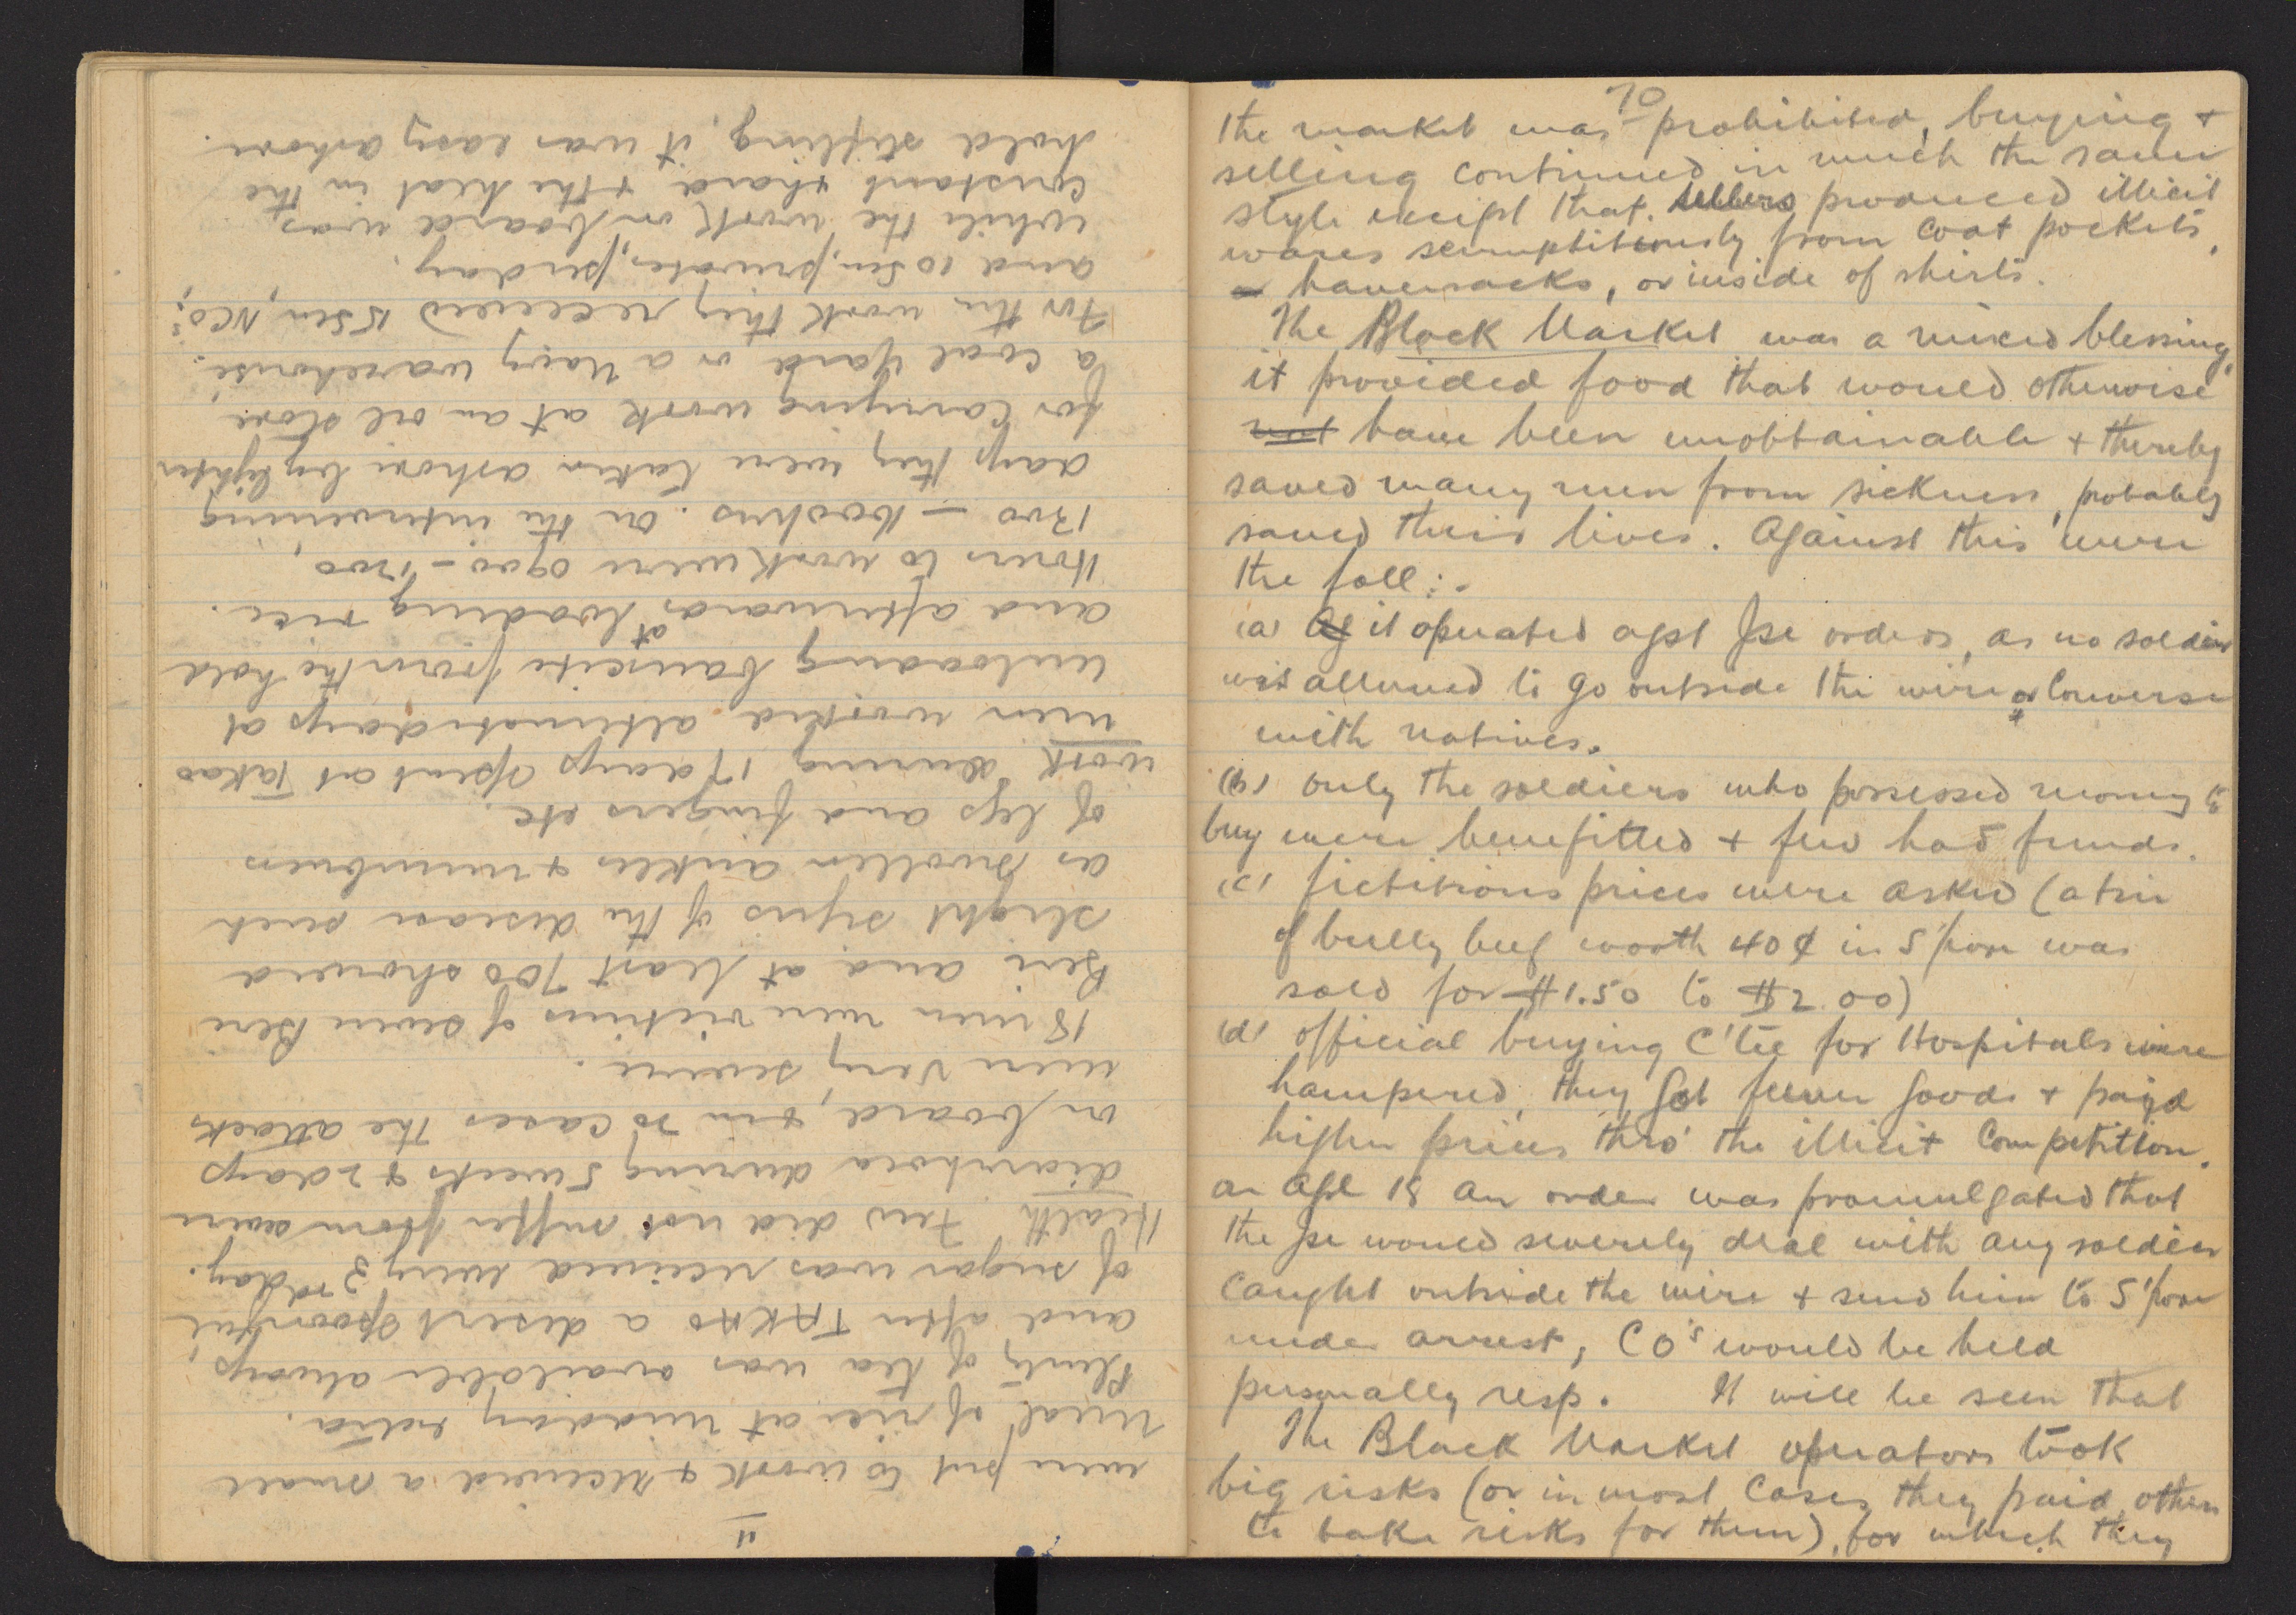 11
were put to work & received a small
meal of rice at midday extra.
Plenty of tea was available always,
and after TAKAO a desert spoonful
of sugar was received every 3rd day.
Health Few did not suffer from severe
diarrhoea during 5 weeks & 2 days
on board, & in 70 cases the attacks
were very severe.
18 men were victims of severe Beri
Beri and at least 700 showed
slight signs of the disease such
as swollen ankles & numbness
of legs and fingers etc.
Work During 17 days spent at Takao
men worked alternate days at
unloading bauxite from the hold
and afterwards at loading rice.
Hours to work were 0900 – 1200,
1300 – 1600 hrs. On the intervening
days they were taken ashore by lighter
for carrying work at an oil store,
a coal yard or a Navy warehouse.
For the work they received 15 Sen, NCOs,
and 10 Sen, privates, per day.
While the work on board was
constant & hard & the heat in the
hold stifling, it was easy ashore.
10
the market was prohibited, buying &
selling continued in much the same
style except that sellers produced illicit
wares scrumptitiously from coat pockets,
or haversacks, or inside of shirts.
The Black Market was a mixed blessing,
it provided food that would otherwise
not have been unobtainable & thereby
saved many men from sickness, probably
saved their lives. Against this were
the foll:-
(a) As it operated agst Jse orders, as no soldier
was allowed to go outside the wire or converse
with natives.
(b) only the soldiers who possessed money to
buy were benefitted & few had funds.
(c) fictitious prices were asked (a tin
of bully beef worth 40¢ in S'pore was
sold for $1.50 to $2.00)
(d) official buying C'tee for Hospitals were
hampered, they got fewer goods & payd
higher prices thro' the illicit competition.
on Apl 18 an order was promulgated that
the Jse would severely deal with any soldier
caught outside the wire & send him to S'pore
under arrest, COs would be held
personally resp. It will be seen that
The Black Market operators took
big risks (or in most cases they paid others
to take risks for them), for which they